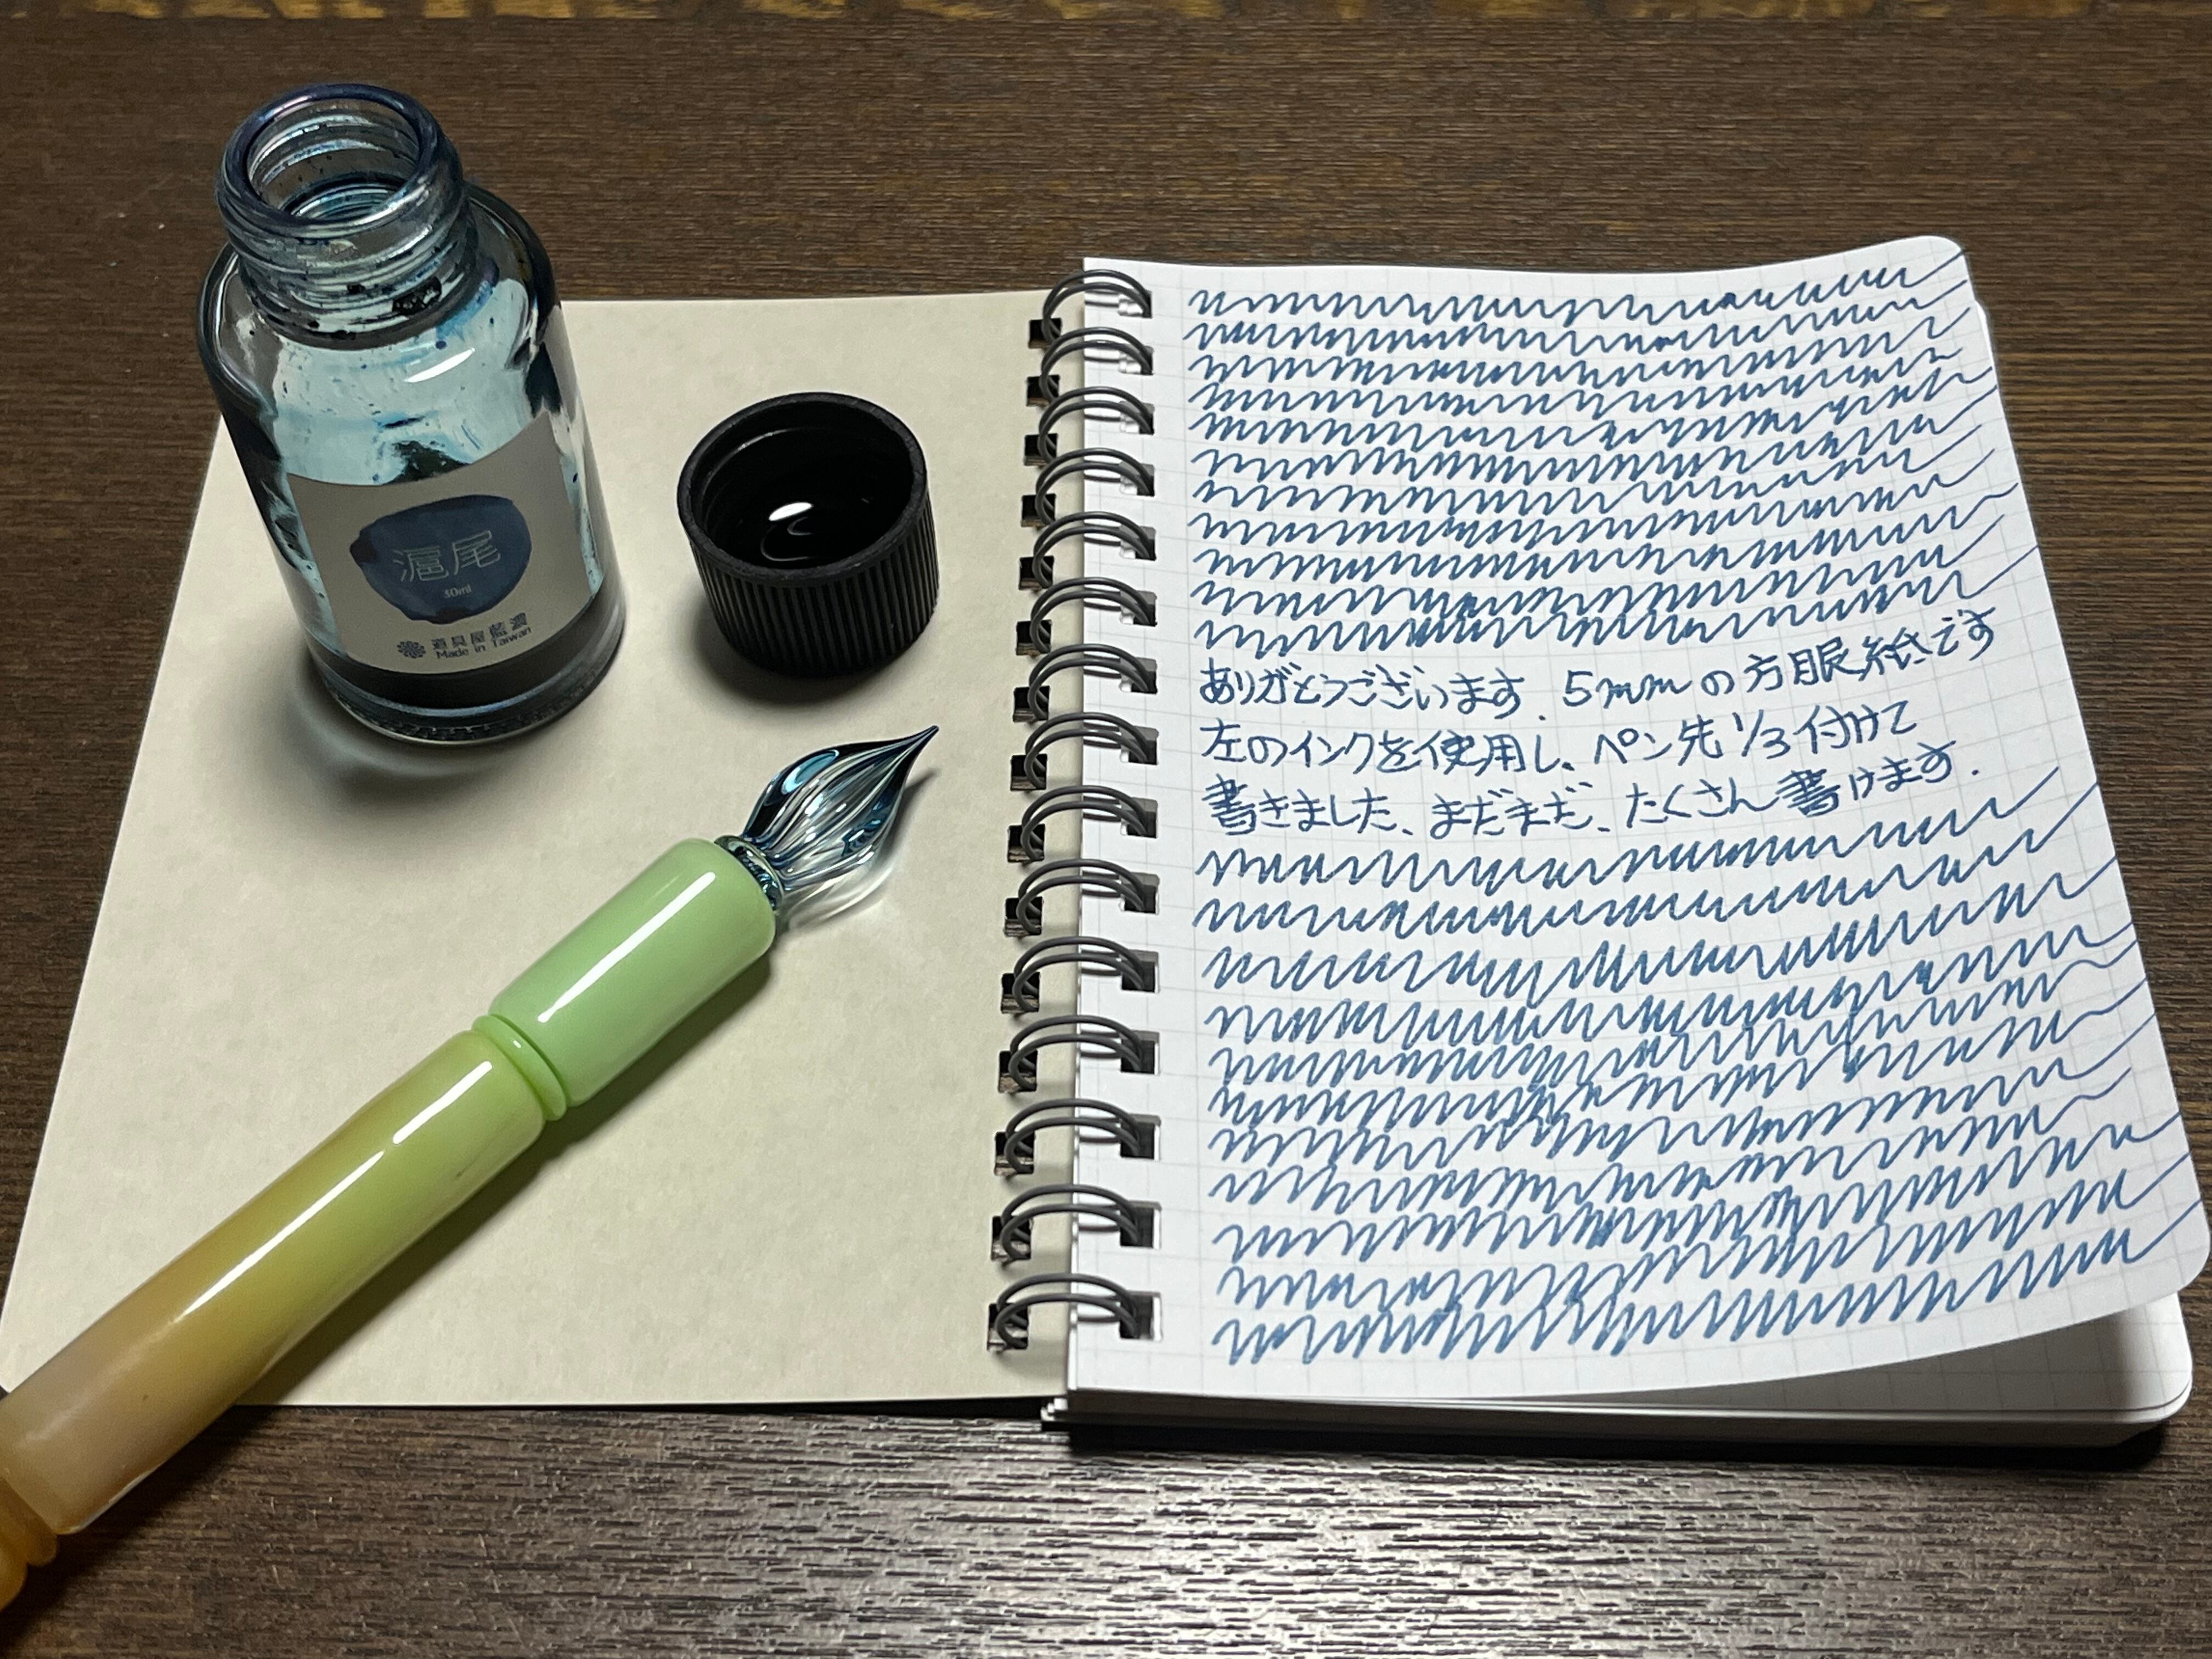 滬尾
30ml
道具屋藍濃
Made in Taiwan
ありがとうございます. 5mmの方眼絵です
左のインクを使用し、ペン先1/3付けて
書きました、まだまだ、たくさん書けます.